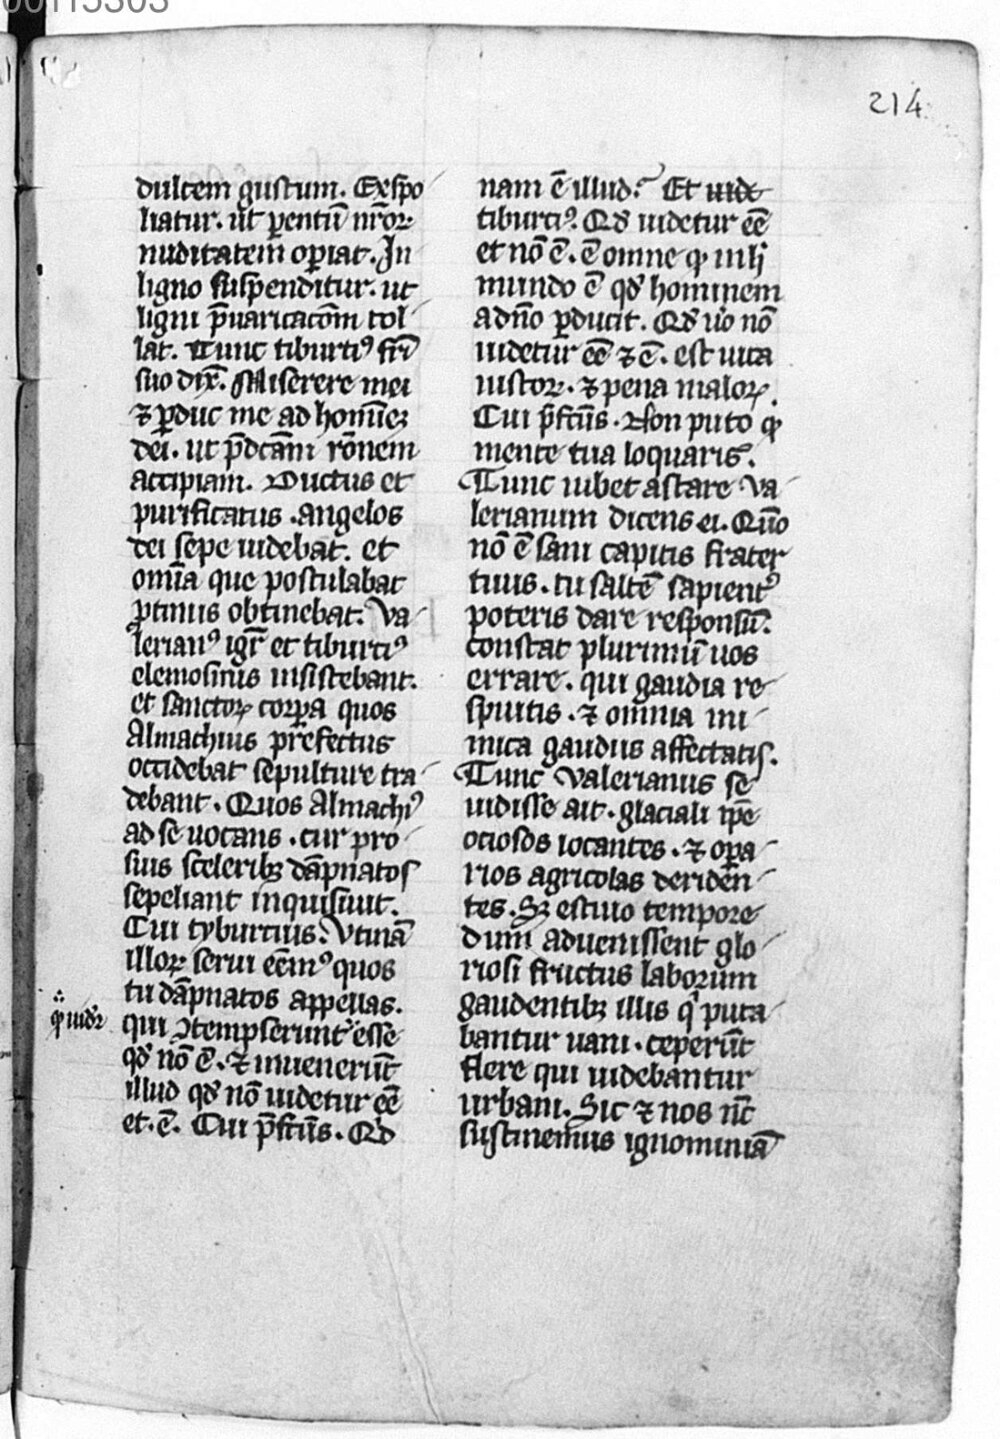 00115303
214
dulcem gustum. Exspo
liatur. ut ꝑentũ nr̃oꝝ
nuditatem oꝑiat. In
ligno suspenditur. ut
ligni p̃uaricacõm tol
lat. Tunc tiburtiꝰ fr̃i
suo dix̃. Miserere mei
⁊ ꝑduc me ad homĩeꝫ
dei. ut p̃dcãm rõnem
accipiam. Ductus et
purificatus. angelos
dei sepe uidebat. et
om̃ia que postulabat
ꝓtinus obtinebat. Va
lerianꝰ igr̃ et tiburciꝰ
elemosinis insistebant.
et sanctoꝝ corꝑa quos
Almachius prefectus
occidebat sepulture tra
debant. Quos Almachiꝰ
ad se uocans. cur pro
suis sceleribꝫ dãpnatos
sepeliant inquisiuit.
Cui tyburcius. Vtinã
illoꝝ serui eẽmꝰ quos
tu dãpnatos appellas.
qui ꝯtempserunt esse
ꝙ uidr̃
qd̾ nõ ẽ. ⁊ inuenerũt
illud qd̾ nõ uidetur eẽ
et. ẽ. Cui p̃fctũs. Qd̾
nam ẽ illud? Et
tiburciꝰ. Qd̾ uidetur eẽ
et nõ ẽ. ẽ omne ꝙ in hͨ
mundo ẽ qd̾ hominem
ad nõ ꝑducit. Qd̾ uͦo nõ
uidetur eẽ ⁊ ẽ. est uita
iustoꝝ. ⁊ pena maloꝝ.
Cui p̃fctũs. Non puto ꝙ
mente tua loquaris.
Tunc iubet astare Va
lerianum dicens ei. Qm̃o
nõ ẽ sani capitis frater
tuus. tu saltẽ sapientꝰ
poteris dare responsũ.
constat plurimũ uos
errare. qui gaudia re
spuitis. ⁊ omnia ini
mica gaudiis affectatis.
Tunc Valerianus se
uidisse ait. glaciali tp̃e
ociosos iocantes. ⁊ oꝑa
rios agricolas deridẽn
tes. Sꝫ estiuo tempore
dum aduenissent glo
riosi fructus laborum
gaudentibꝫ illis qͥ puta
bantur uani. ceperũt
flere qui uidebantur
urbani. Sic ⁊ nos nc̃
sustinemus ignominiã